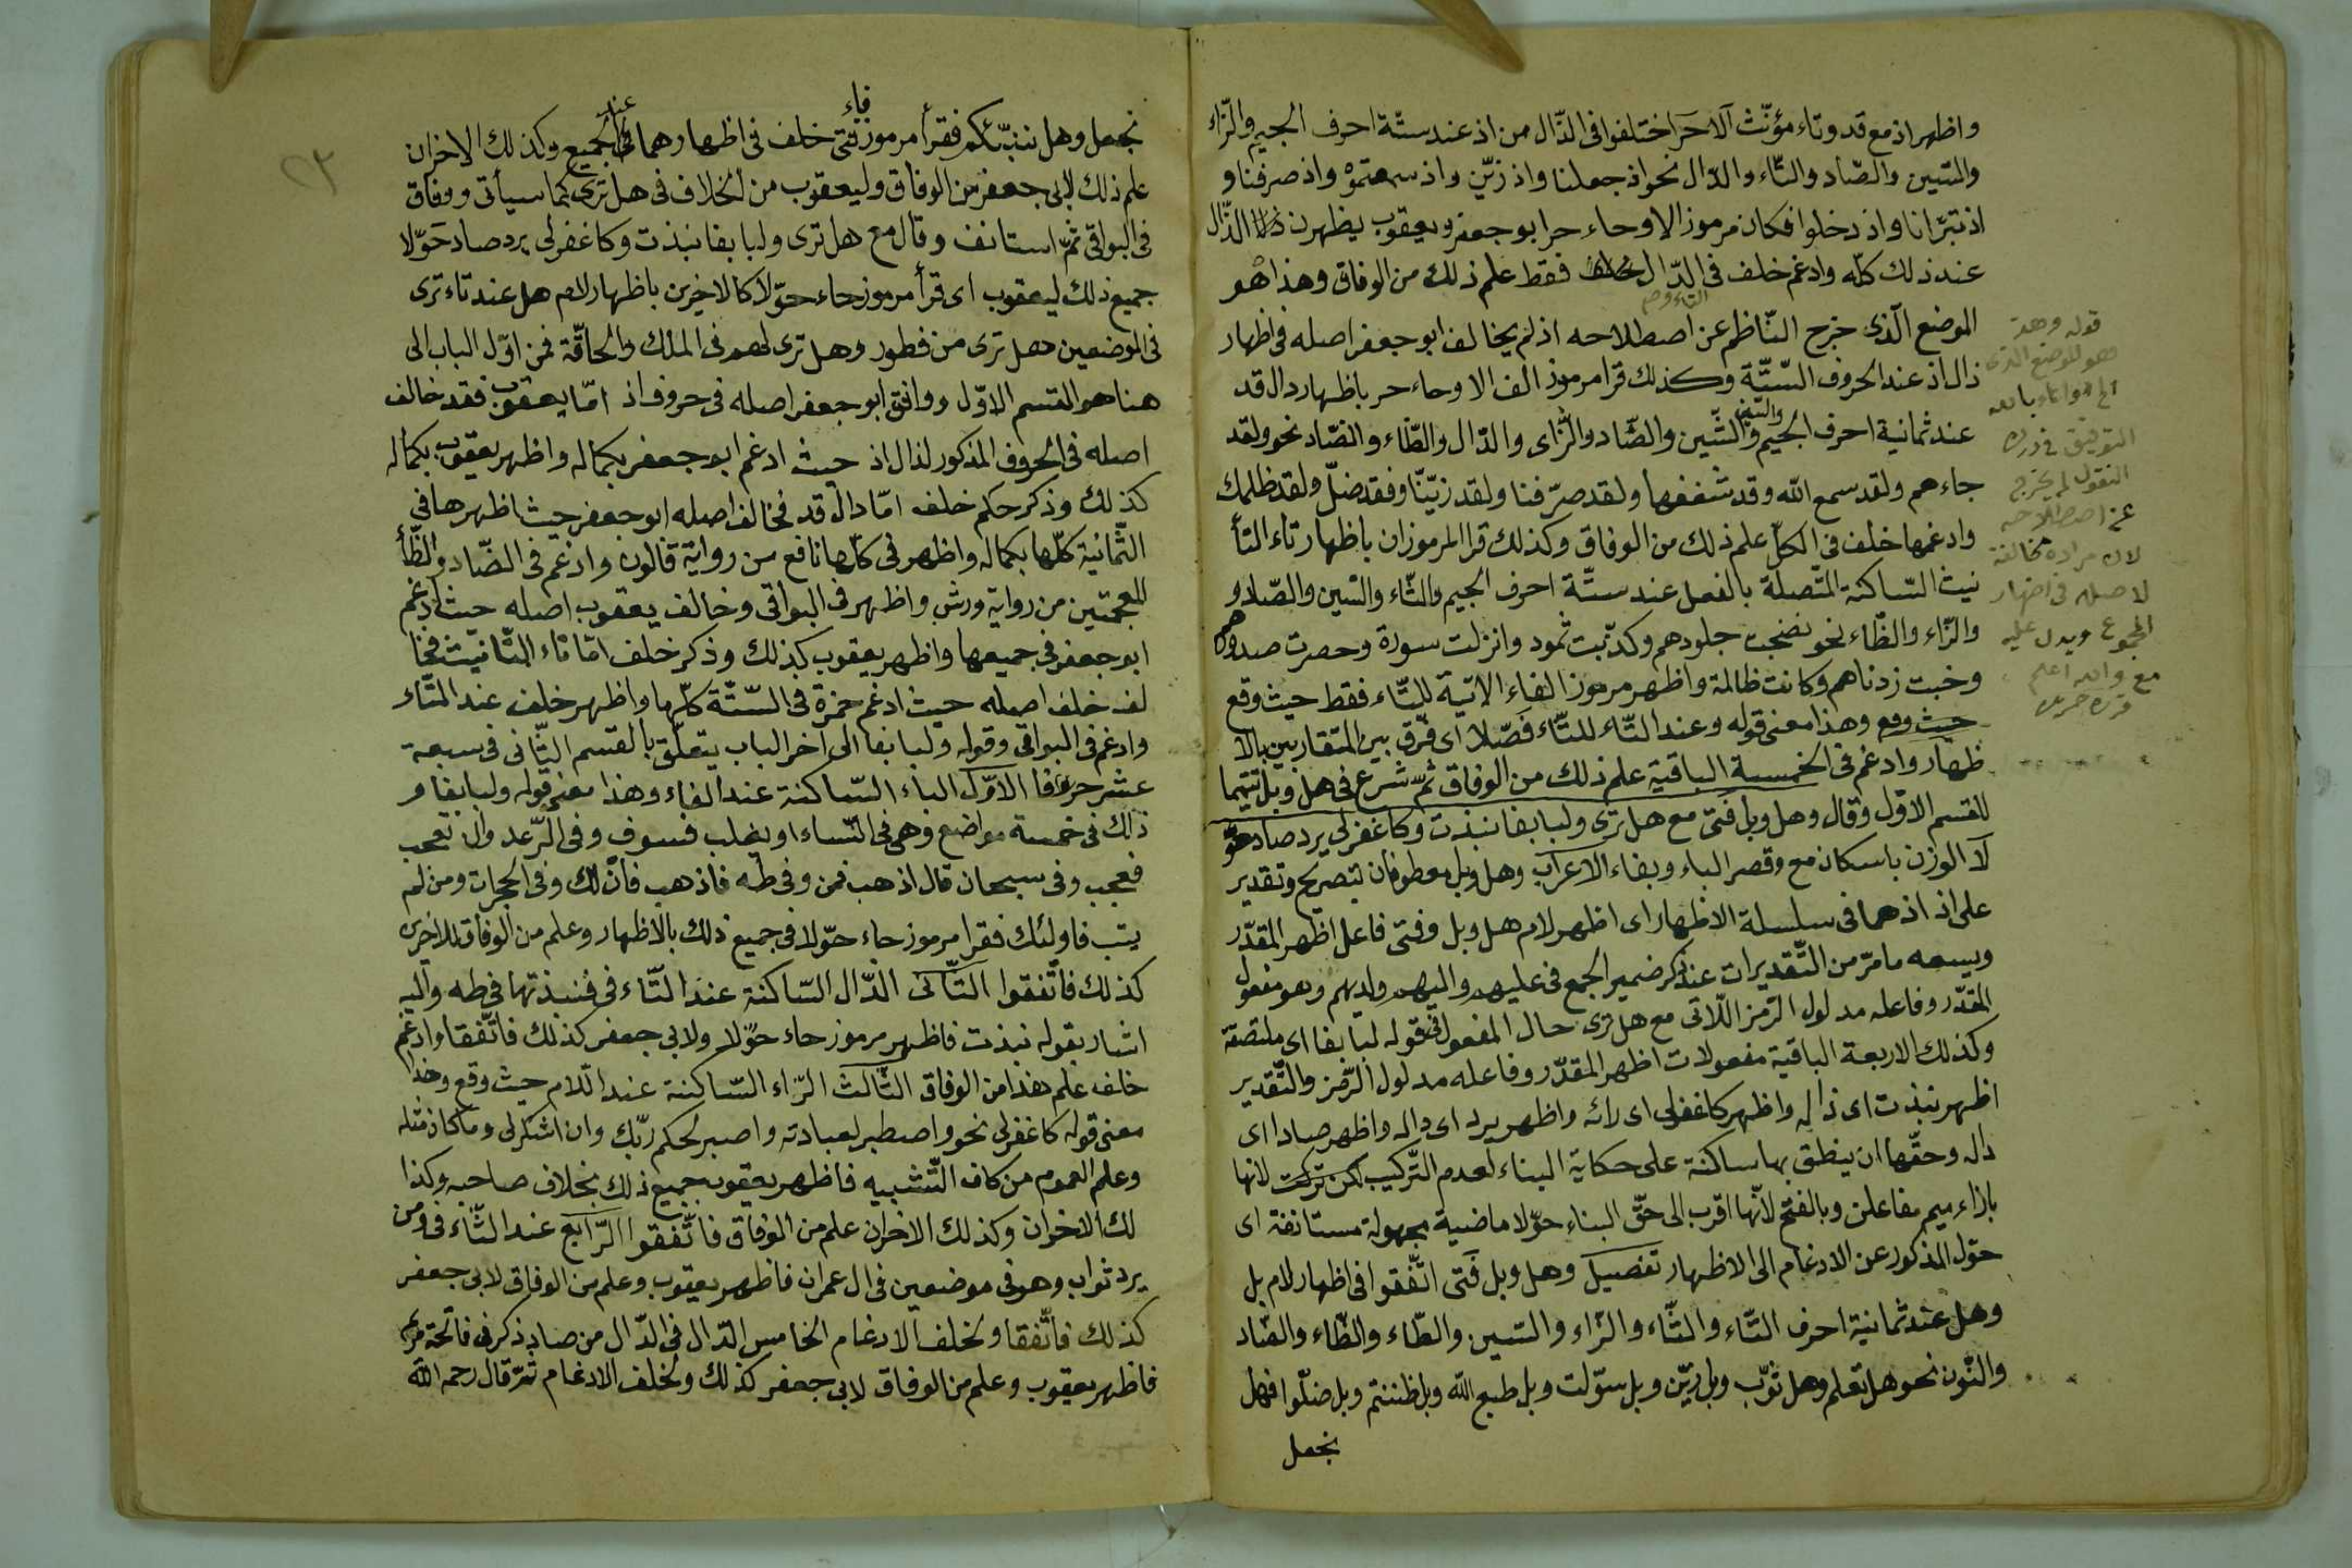 واظهر اذ مع قد وتاء مؤنّث آلا حَز اختلفوا فى الذّال من اذ عند ستّة احرف الجيم والزّاء
والسّين والصّاد والتّاء والدّال نحو اذ جعلنا واذ زيّن واذ سمعتموه واذ صرفنا و
اذ تبرّانا واذ دخلوا فكان مرموز الا وحاء حز ابو جعفر ويعقوب يظهرن الذّال
عند ذلك كلّه وادغم خلف فى الدّال فقط علم ذلك من الوفاق وهذا هو
الموضع الّذى خرج النّاظم عن اصطلاحه اذ لم يخالف ابو جعفر اصله فى اظهار
ذال اذ عند الحروف السّتّة وكذلك قرا مرموز الف الا وحاء حز باظهار دال قد
عند ثمانية احرف الجيم والسّين والشّين والصّاد والزّاى والذّال والظّاء والضّاد نحو ولقد
جاءهم ولقد سمع الله وقد شغفها ولقد صرّفنا ولقد زيّنّا وفقد ضلّ ولقد ظلمك
وادغمها خلف فى الكلّ علم ذلك من الوفاق وكذلك قرا المرموزان باظهار تاء التأ
نيث السّاكنة المتّصلة بالفعل عند ستّة احرف الجيم والثّاء والسّين والصّاد و
والزّاء والظّاء نحو نضجت جلودهم وكذّبت ثمود وانزلت سورة وحصرت صدورهم
وخبت زدناهم وكانت ظالمة واظهر مرموز الفاء الاتية للثّاء فقط حيث وقع
حيث وقع وهذا معنى قوله وعند الثّاء للتّاء فصّلا اى فرق بين المتقاربين بالا
ظهار وادغم فى الخمسة الباقية علم ذلك من الوفاق ثمّ شرع فى هل وبل تتميما
للقسم الاوّل وقال وهل وبل فتى مع هل ترى ولبا بفا نبذت وكاغفر لى يرد صاد حوّ
لا الوزن باسكان مع وقصر الباء وبفاء الاعراب وهل وبل معطوفان بتصريح وتقدير
على اذ اذ هما فى سلسلة الاظهار اى اظهر لام هل وبل وفتى فاعل اظهر المقدّر
ويسعه ما مرّ من التّقديرات عند ذكر ضمير الجمع فى عليهم واليهم ولديهم وهو مفعول
المقدّر وفاعله مدلول الرّمز اللّاتى مع هل ترى حال المفعول فى قوله لبا بفا اى ملتصقة
وكذلك الاربعة الباقية مفعولات اظهر المقدّر وفاعله مدلول الرّمز والتّقدير
اظهر نبذت اى ذاله واظهر كاغفر لى اى رائه واظهر يرد اى داله واظهر صادا اى
داله وحقّها ان ينطق بها ساكنة على حكاية البناء لعدم التّركيب لكن تركت لانها
بازاء ميم مفاعلن وبالفتح لانّها اقرب الى حقّ البناء حوّلا ماضية مجهولة مستانفة اى
حوّل المذكور عن الادغام الى الاظهار تفصيل وهل وبل فتى اتّفقوا فى اظهار لام بل
وهل عند ثمانية احرف التّاء والثّاء والزّاء والسّين والطّاء والظّاء والضّاد
والنّون نحو هل تعلم وهل ثوّب وبل زيّن وبل سوّلت وبل طبع الله وبل ظننتم وبل ضلّوا فهل
نجعل
قوله وهذ
هو الموضع الذى
التوفيق
النقول لم يخرج
عن اصطلاحه
لان مراده مخالفة
لاصله فى اظهار
المجموع ويدل عليه
مع والله اعلم
نجعل وهل ننبّئكم فقرأ مرموز فاء فتى خلف فى اظهارهما عند الجميع وكذلك الاخران
علم ذلك لابى جعفر من الوفاق وليعقوب من الخلاف فى هل ترى كما سيأتى ووفاق
فى البواقى ثمّ استانف وقال مع هل ترى ولبا بفا نبذت وكاغفر لى يرد صاد حَوّلا
جميع ذلك ليعقوب اى قرأ مرموز حاء حوّلا كالاخيرين باظهار لام هل عند تاء ترى
فى الموضعين هل ترى من فطور وهل ترى لهم فى الملك والحاقّة فمن اوّل الباب الى
هنا هو القسم الاوّل ووافق ابو جعفر اصله فى حروف اذ امّا يعقوب فقد خالف
اصله فى الحروف المذكور لذال اذ حيث ادغم ابو جعفر بكماله واظهر يعقوب بكماله
كذلك وذكر حكم خلف امّا دال قد فخالف اصله ابو جعفر حيث اظهرها فى
الثّمانية كلّها بكماله واظهر فى كلّها نافع من رواية قالون وادغم فى الضّاد والظّأ
المعجمتين من رواية ورش واظهر فى البواقى وخالف يعقوب اصله حيث ادغم
ابو جعفر فى جميعها واظهر يعقوب كذلك وذكر خلف امّا تاء التّانيث فخا
لف خلف اصله حيث ادغم حمزة فى السّتّة كلّها واظهر خلف عند الثّاء
وادغم فى البواقى وقوله ولبا بفا الى آخر الباب يتعلّق بالقسم الثّانى فى سبعة
عشر حرفا الاوّل الباء السّاكنة عند الفاء وهذا معنى قوله ولبا بفا و
ذلك فى خمسة مواضع وهى فى النّساء او يغلب فسوف وفى الرّعد وان تعجب
فعجب وفى سبحان قال اذهب فمن وفى طه فاذهب فانّ لك وفى الحجرات ومن لم
يتب فاولئك فقرا مرموز حاء حوّلا فى جميع ذلك بالاظهار وعلم من الوفاق للاخرى
كذلك فاتّفقوا الثّانى الذّال السّاكنة عند التّاء فى فنبذتها فى طه واليه
اشار بقوله نبذت فاظهر مرموز حاء حوّلا ولابى جعفر كذلك فاتّفقا وادغم
خلف علم هذا من الوفاق الثّالث الرّاء السّاكنة عند اللّام حيث وقع وهذا
معنى قوله كاغفر لى نحو واصطبر لعبادته واصبر لحكم ربّك وان اشكر لى وما كان مثله
وعلم العموم من كاف التّشبيه فاظهر يعقوب جميع ذلك بخلاف صاحبه وكذا
لك الاخران وكذلك الاخران علم من الوفاق فاتّفقوا الرّابع عند الثّاء فى ومن
يرد ثواب وهو فى موضعين فى ال عمران فاظهر يعقوب وعلم من الوفاق لابى جعفر
كذلك فاتّفقا ولخلف الادغام الخامس الدّال فى الذّال من صاد ذكر فى فاتحة مريم
فاظهر يعقوب وعلم من الوفاق لابى جعفر كذلك ولخلف الادغام ثمّ قال رحمه الله